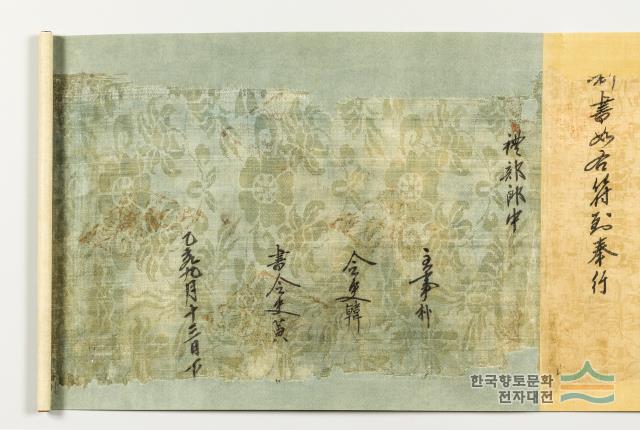 制書如右符到奉行
禮部郎中
主事朴
令史韓
書令史黃
乙亥九月十三日下
한국향토문화
전자대전